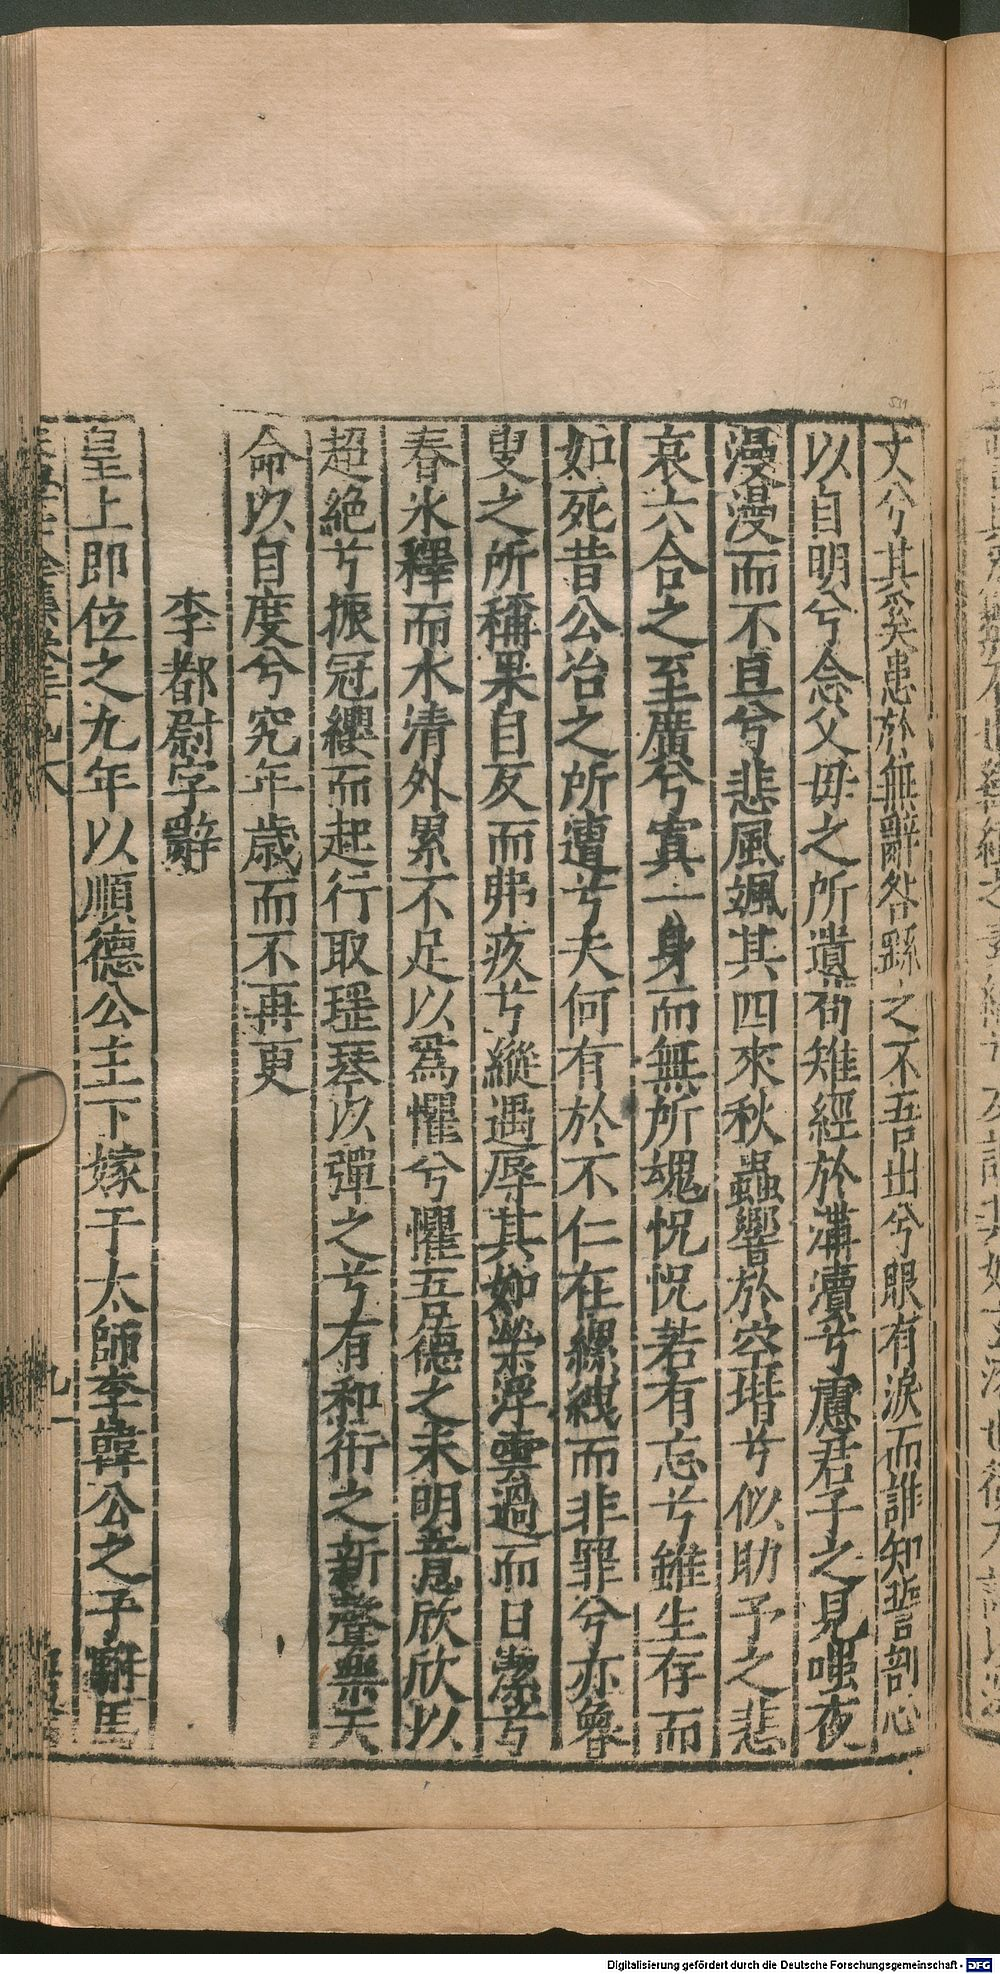 丈兮其奚患於無辭咎繇之不吾出兮眼有淚而誰知誓剖心
以自明兮念父母之所遺苟雉經於溝瀆兮慮君子之見嗤夜
漫漫而不亘兮悲風颯其四來秋蟲響於空堦兮似助予之悲
哀六合之至廣兮寘一身而無所魂怳怳若有忘兮雖生存而
如死昔公冶之所遭兮夫何有於不仁在縲絏而非罪兮亦魯
叟之所稱果自反而弗疚兮縱遇辱其如榮浮雲過而日潔兮
春氷釋而水清外累不足以爲懼兮懼吾德之未明意欣欣以
超絶兮振冠纓而起行取瑶琴以彈之兮有和衎之新聲樂天
命以自度兮究年歲而不再更
李都尉字辭
皇上即位之九年以順德公主下嫁于太師李韓公之子駙馬
九
531
Digitalisierung gefördert durch die Deutsche Forschungsgemeinschaft - DFG